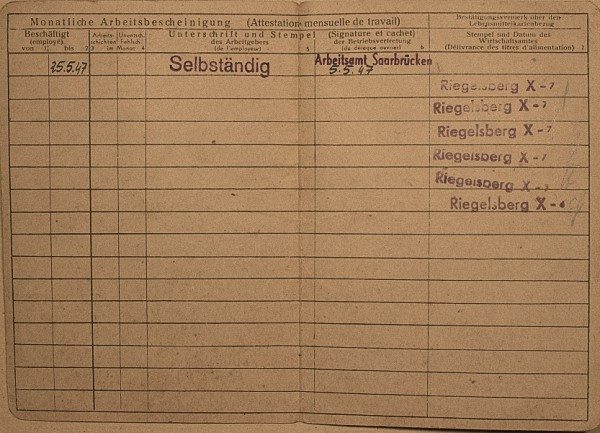 Monatliche Arbeitsbescheinigung (Attestation mensuelle de travail)
Bestätigungsvermerk über den
Lebensmittelkartenbezug
Beschäftigt
(employé)
von 1. bis 2
Arbeits-
schichten
3
Unentsch.
Fehlsch.
im Monat 4
Unterschrift und Stempel
des Arbeitgebers
(de l'employeur) 5
(Signature et cachet)
der Betriebsvertretung
(du délégué ouvrier) 6
Stempel und Datum des
Wirtschaftsamtes
(Délivrance des titres d'alimentation) 7
25.5.47
Selbständig
Arbeitsamt Saarbrücken
5.5.47
Riegelsberg X-7
Riegelsberg X-7
Riegelsberg X-7
Riegelsberg X-7
Riegelsberg X-7
Riegelsberg X-6